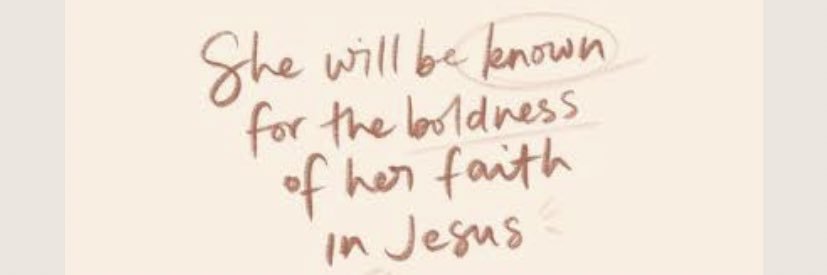 She will be known
for the boldness
of her faith
in Jesus